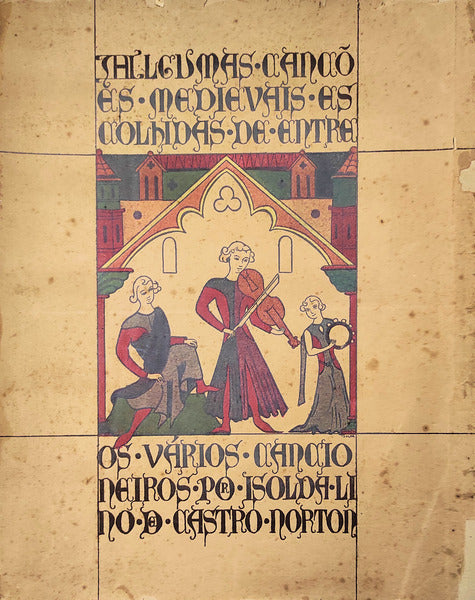 ALGUMAS·CANCÕ
ES·MEDIEVAIS·ES
COLHIDAS·DE·ENTRE
OS·VÁRIOS·CANCIO
NEIROS·POR·ISOLDA·LI
NO·DE·CASTRO·NORTON